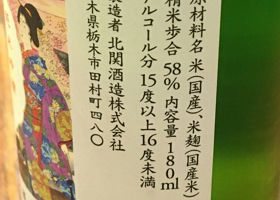 原材料名 米(国産)、米麹(国産米)
精米歩合 58% 内容量180ml
アルコール分 15度以上16度未満
製造者 北関酒造株式会社
栃木県栃木市田村町四八〇